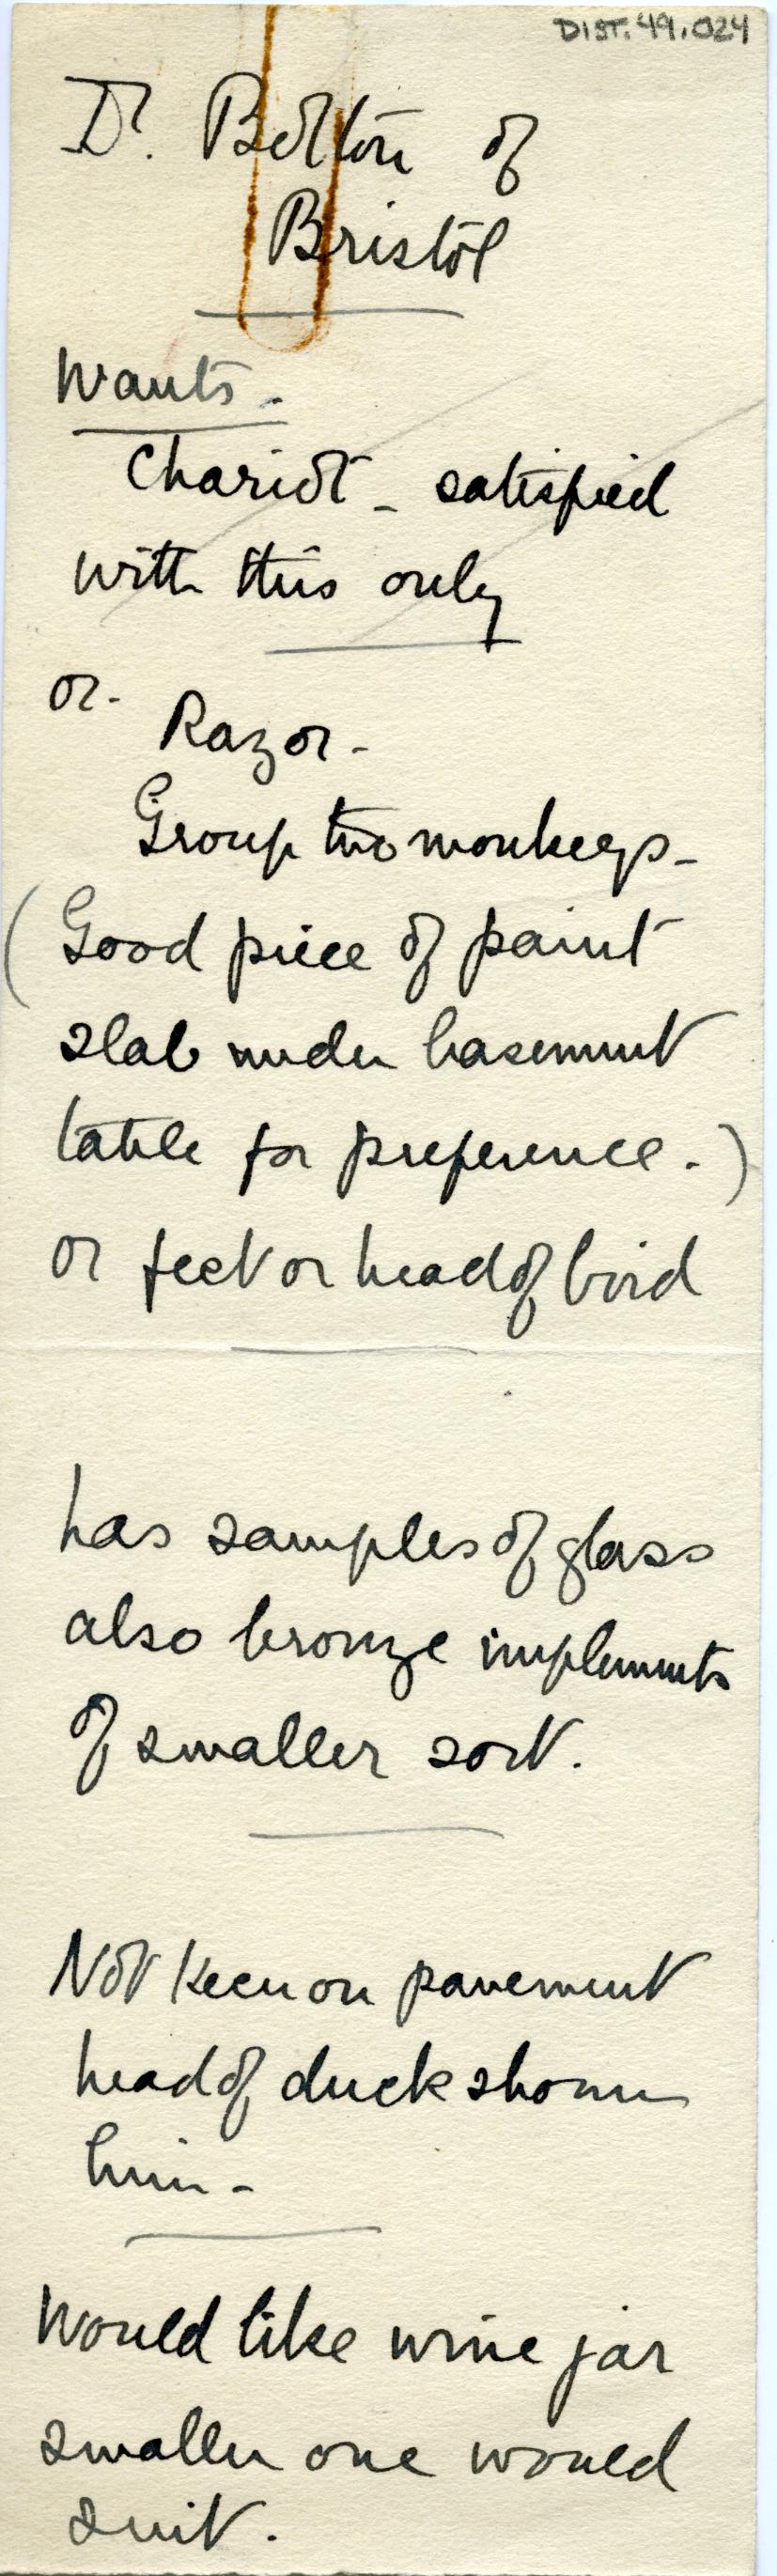 DIST. 49.024
Dr. Bolton of
Bristol
Wants -
Chariot - satisfied
with this only
or -
Razor -
Group two monkeys -
(Good piece of paint
slab under basement
table for preference.)
or feet or head of bird
has samples of glass
also bronze implements
of smaller sort.
Not keen on pavement
head of duck shown
him -
Would like wine jar
smaller one would
suit.